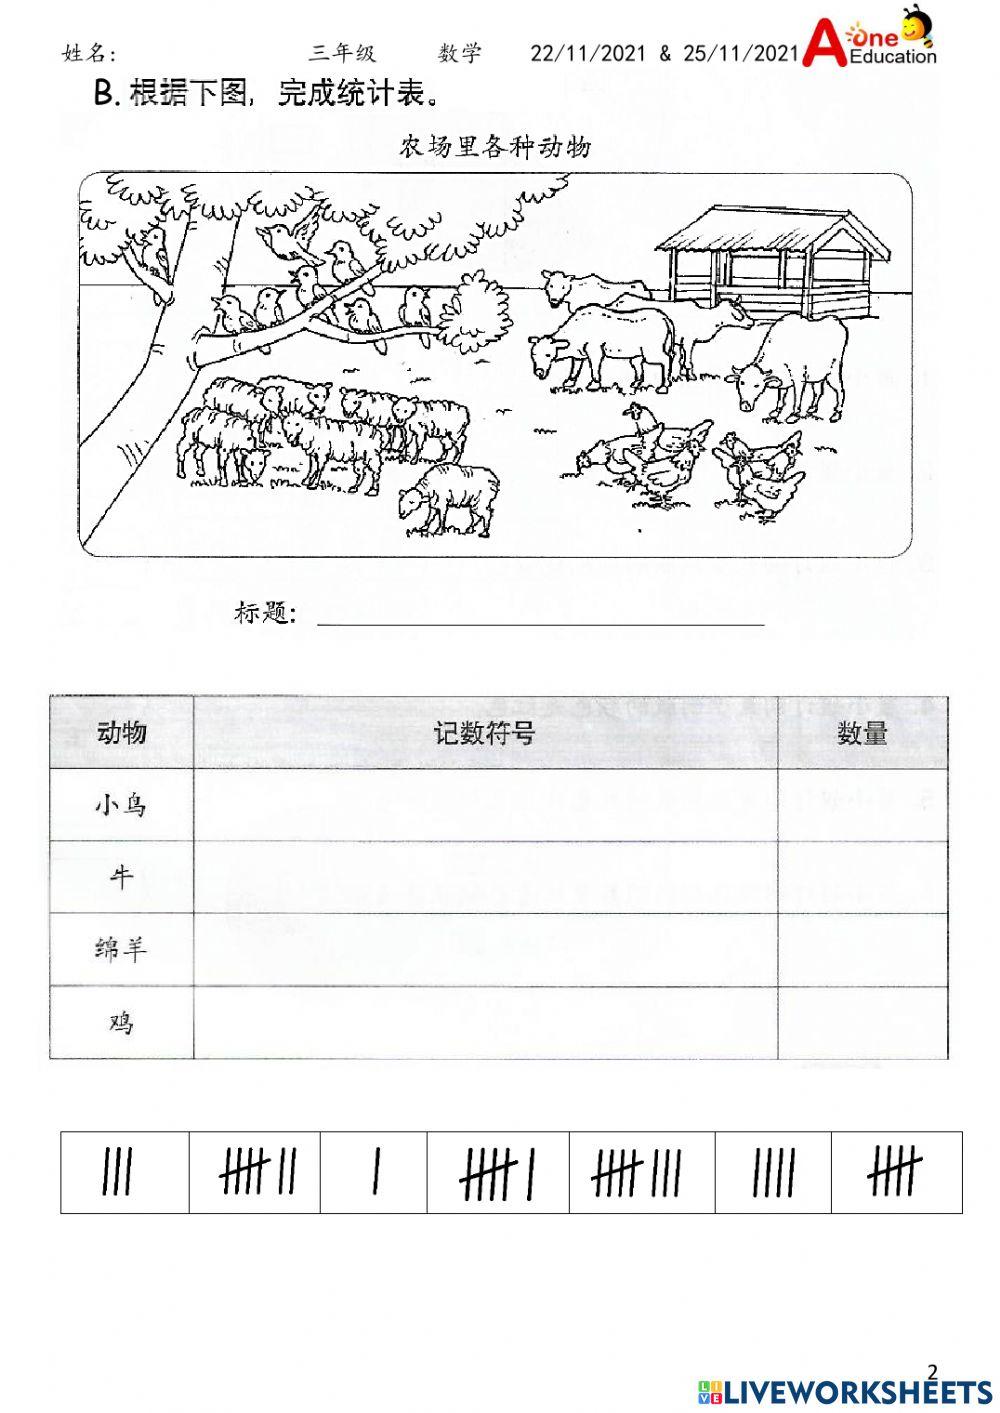 姓名: 三年级 数学 22/11/2021 & 25/11/2021 A One Education
B. 根据下图，完成统计表。
农场里各种动物
标题:
动物 记数符号 数量
小鸟
牛
绵羊
鸡
2
LIVEWORKSHEETS